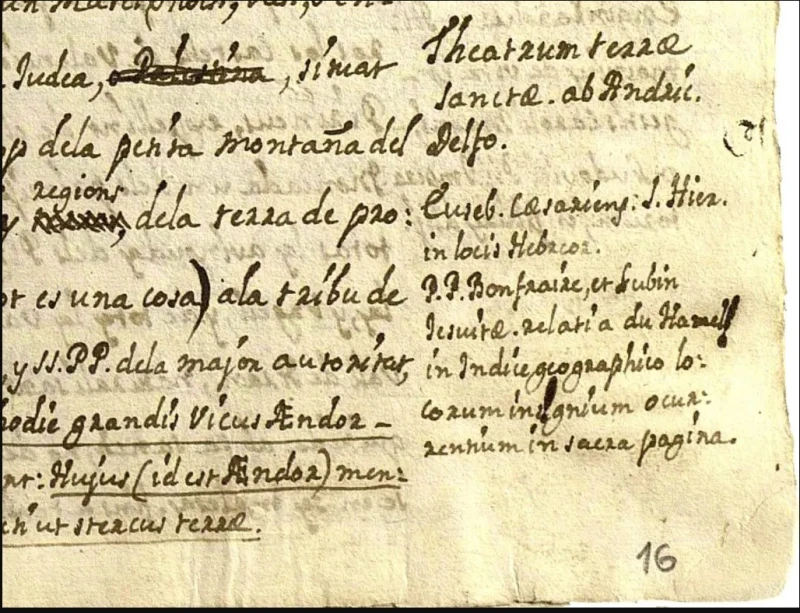 Judea, o Palestina, situat
op dela petita montaña del
regions
y dela terra de pro:
ot es una cosa) ala tribu de
, y SS. PP. dela major autoritat,
hodie grandis Vicus Ændor -
nt: Hujus (id est Ændor) men:
ut stercus terræ.
Theatrum terræ
sanctæ. ab Andri.
Delfo.
Euseb. Cæsariens: S. Hier.
in locis Hebreor.
P.P. Bonfraire, et Lubin
Jesuitæ. relati a du Hamel
in Indice geographico lo:
corum insignium ocur:
rentium in sacra pagina.
16